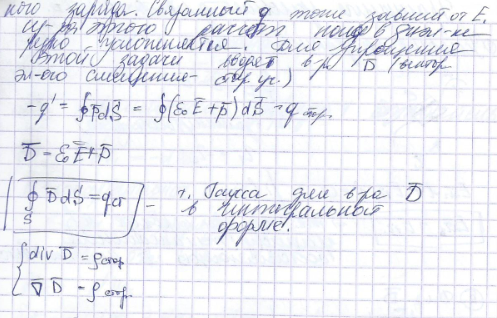 ного заряда. Связанный q тоже зависит от E.
из-за этого расчёт поля в диэл-ке
резко усложняется. Для упрощения
этой задачи вводят в-р D̅ (вектор
эл-ого смещения стор. уч.)
-q' = ∮P̅dS̅ = ∮(ε₀E̅+P̅)dS̅ = q стор.
D̅ = ε₀E̅+P̅
∮ D̅dS̅ = qст – т. Гаусса для в-ра D̅
S
в интегральной
форме.
{ div D̅ = ρстор
∇̅ D̅ = ρстор.